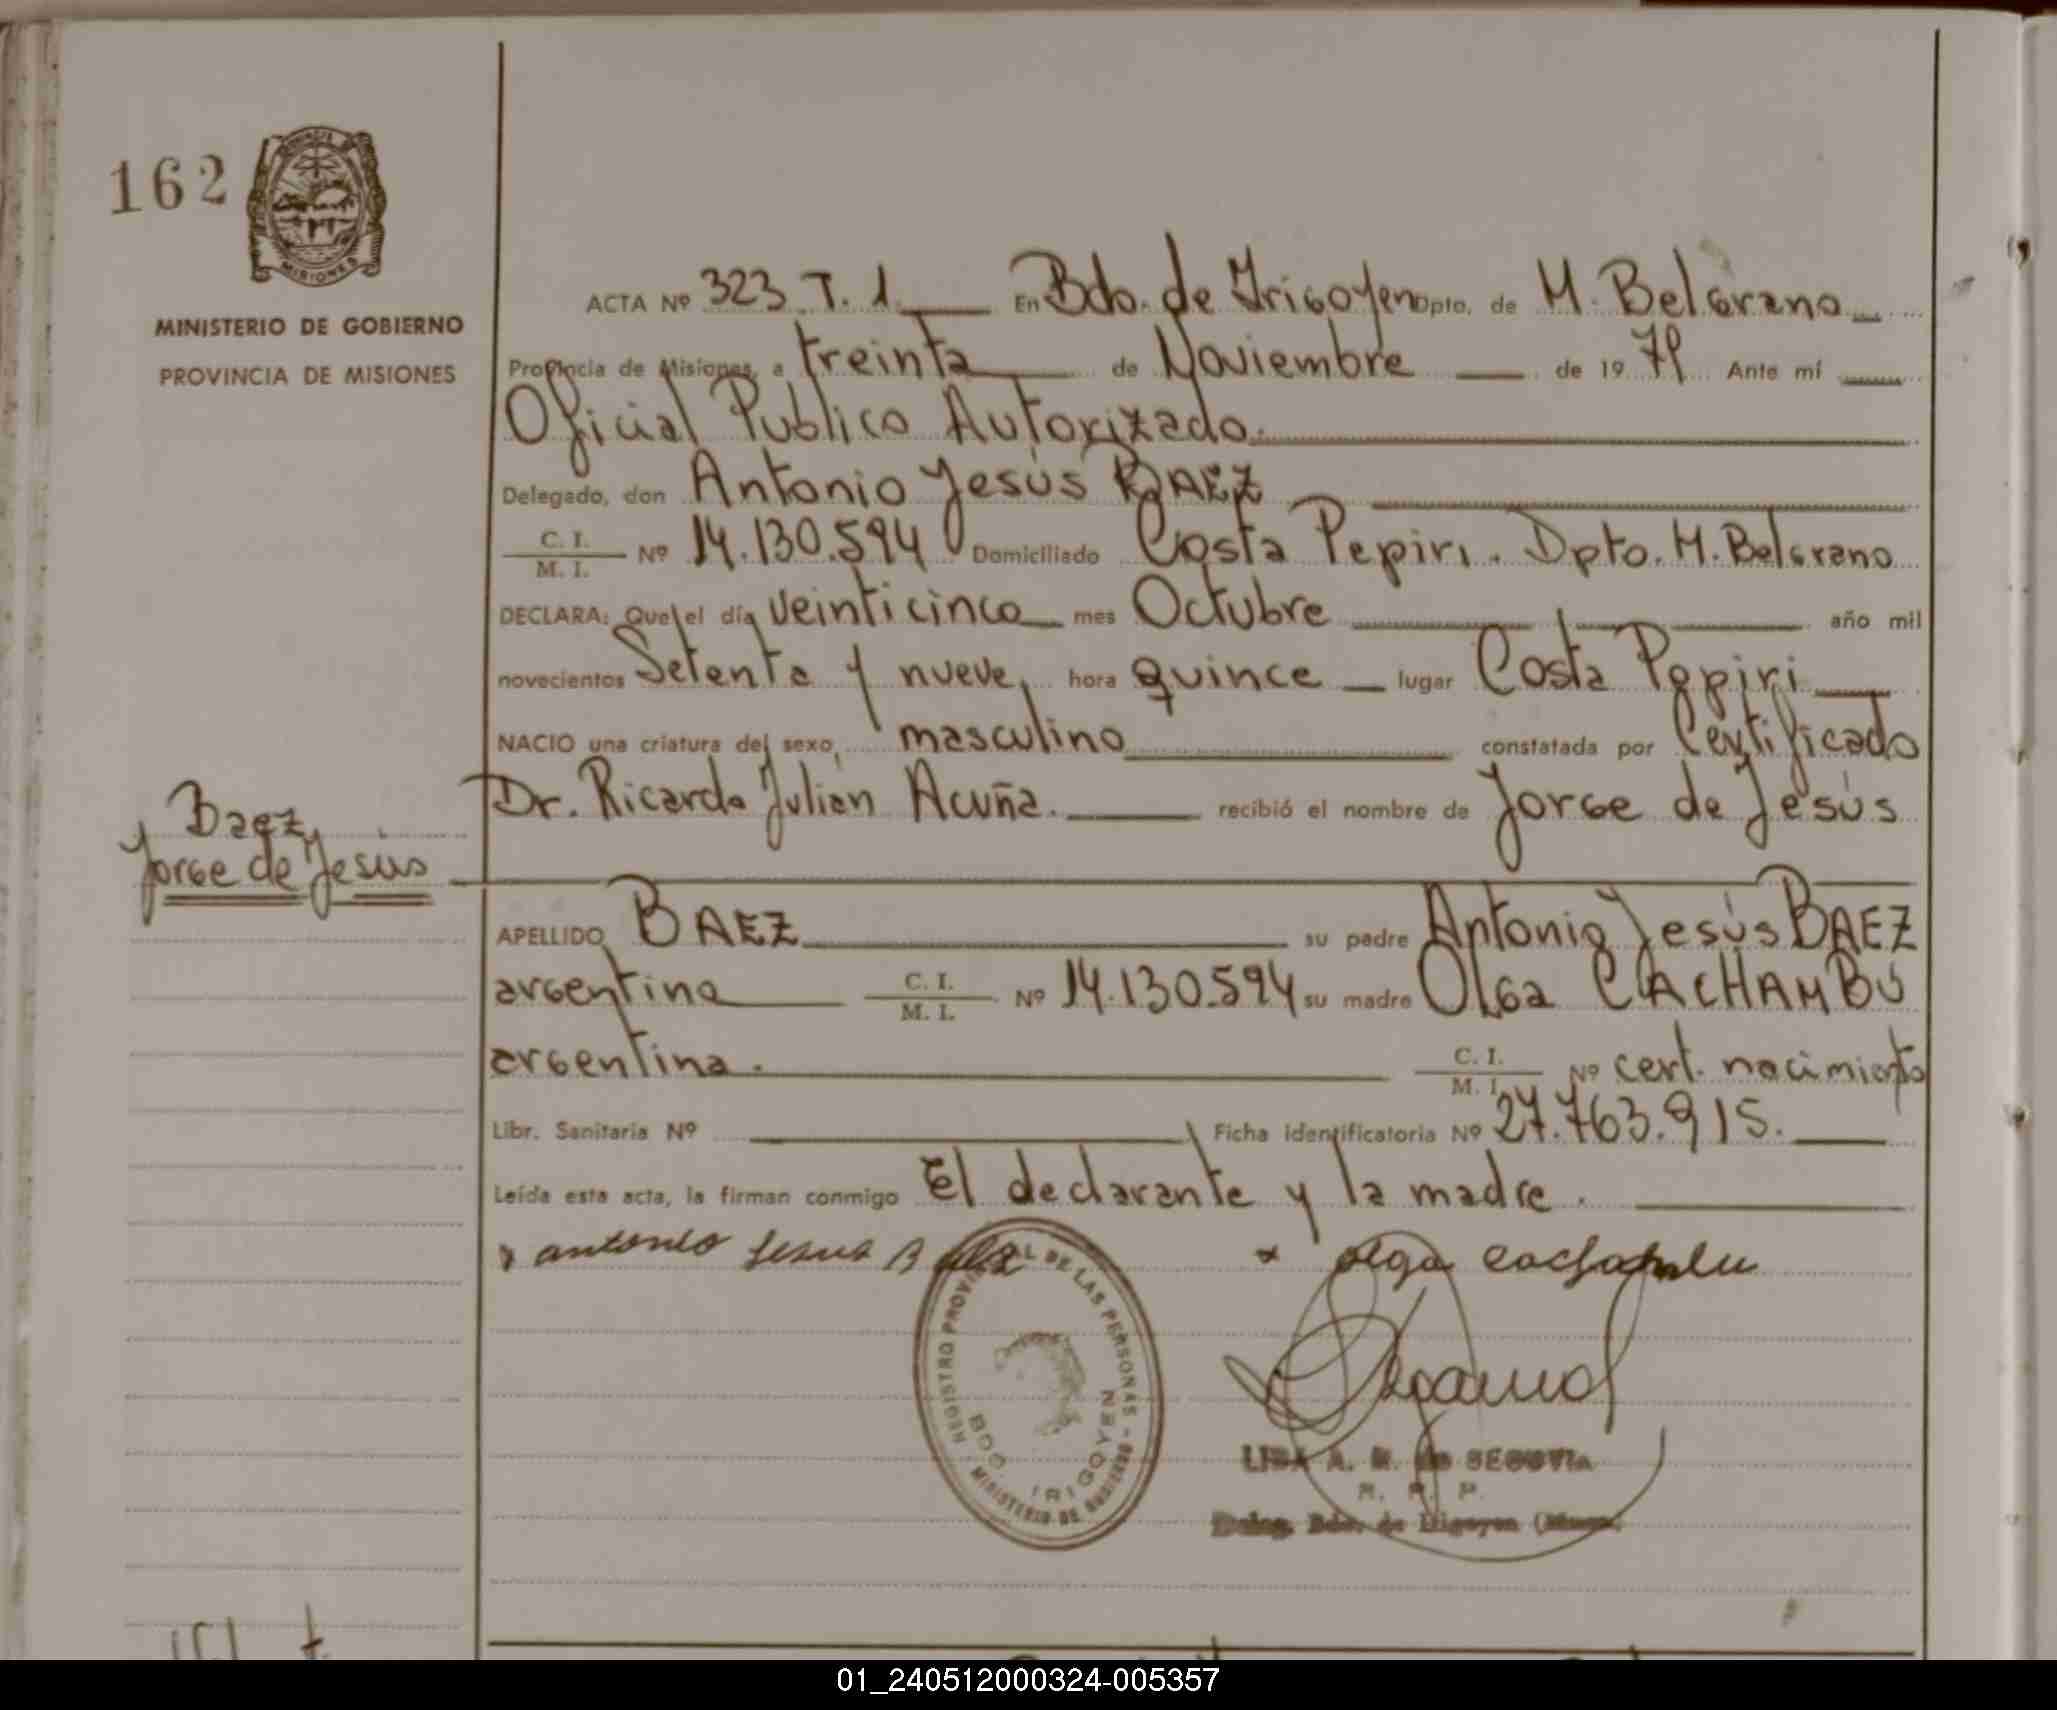 162
MISIONES
MINISTERIO DE GOBIERNO
PROVINCIA DE MISIONES
ACTA Nº 323 T. 1. En Bdo. de Irigoyen Dpto. de M. Belgrano
Provincia de Misiones, a treinta de Noviembre de 19 79 Ante mí
Oficial Publico Autorizado.
Delegado, don Antonio Jesús BAEZ
C. I. / M. I. Nº 14.130.594 Domiciliado Costa Pepiri. Dpto. M. Belgrano
DECLARA: Que el día veinticinco mes Octubre año mil
novecientos Setenta y nueve, hora quince lugar Costa Pepiri
NACIO una criatura del sexo, masculino constatada por Certificado
Dr. Ricardo Julián Acuña. recibió el nombre de Jorge de Jesús
Baez,
Jorge de Jesús
APELLIDO BAEZ su padre Antonio Jesús BAEZ
argentino C. I. / M. I. Nº 14.130.594 su madre Olga CACHAMBÚ
argentina. C. I. / M. I. Nº cert. nacimiento
Libr. Sanitaria Nº Ficha identificatoria Nº 27.763.915.
Leída esta acta, la firman conmigo El declarante y la madre.
x antonio Jesus Baez x olga cachambu
REGISTRO PROVINCIAL DE LAS PERSONAS - MINISTERIO DE GOBIERNO
BDO. IRIGOYEN
A. M. de SEGOVIA
R. P.
Deleg. Bdo. de Irigoyen
01_240512000324-005357